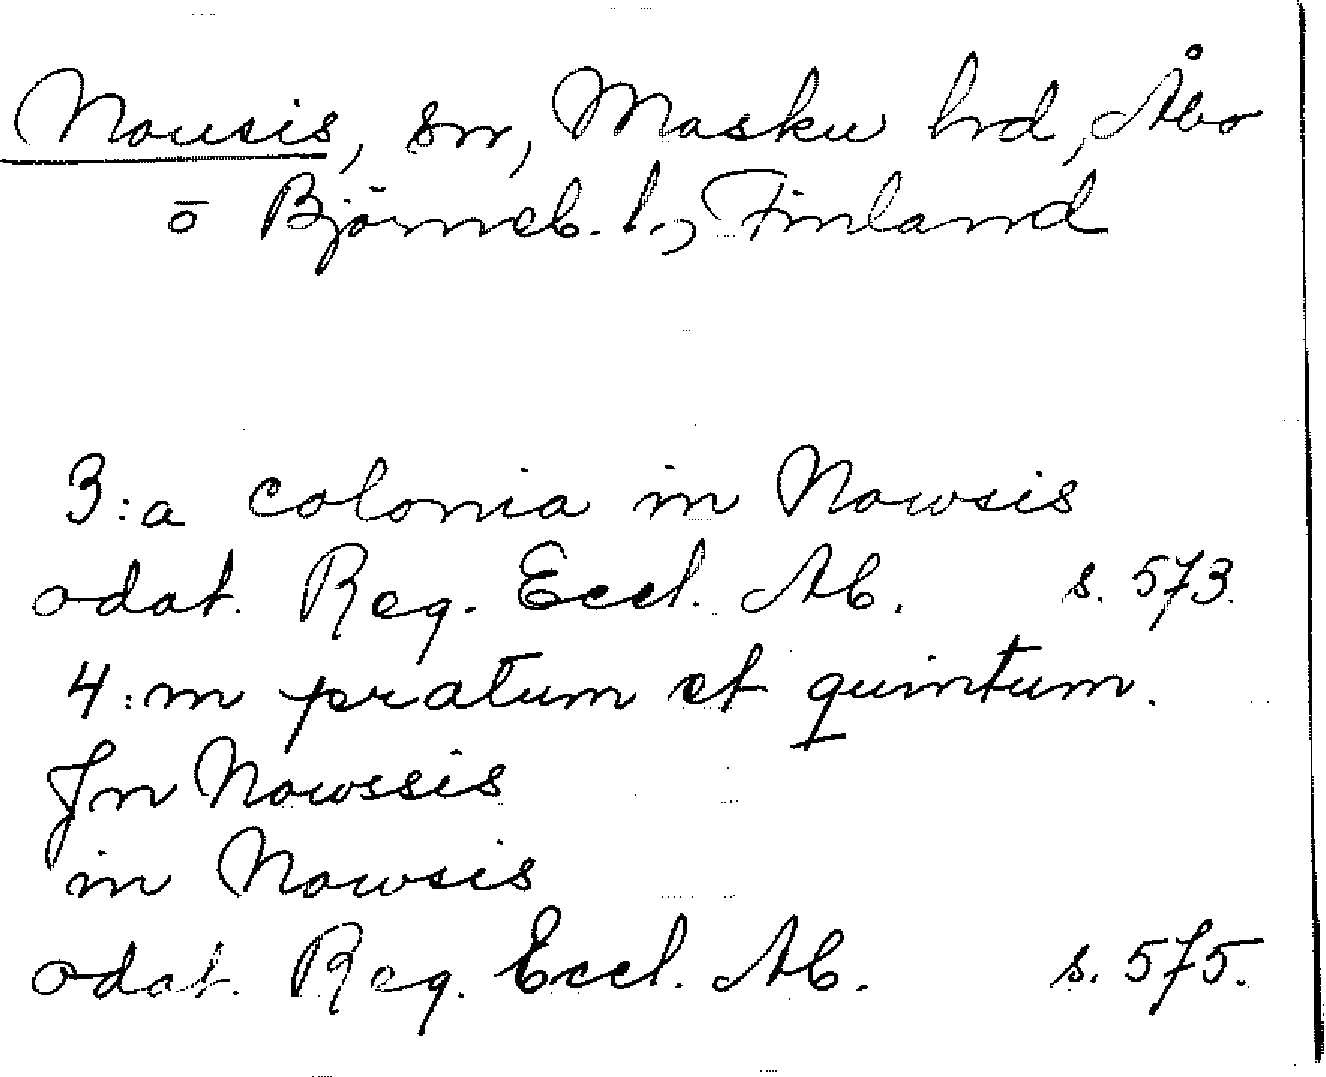 Nousis, sn, Masku hrd, Åbo
o Björneb. l., Finland
3:a colonia in Nowsis
odat. Reg. Eccl. Ab. s. 573.
4:m pratum et quintum.
Jn Nowssis
in Nowsis
odat. Reg. Eccl. Ab. s. 575.